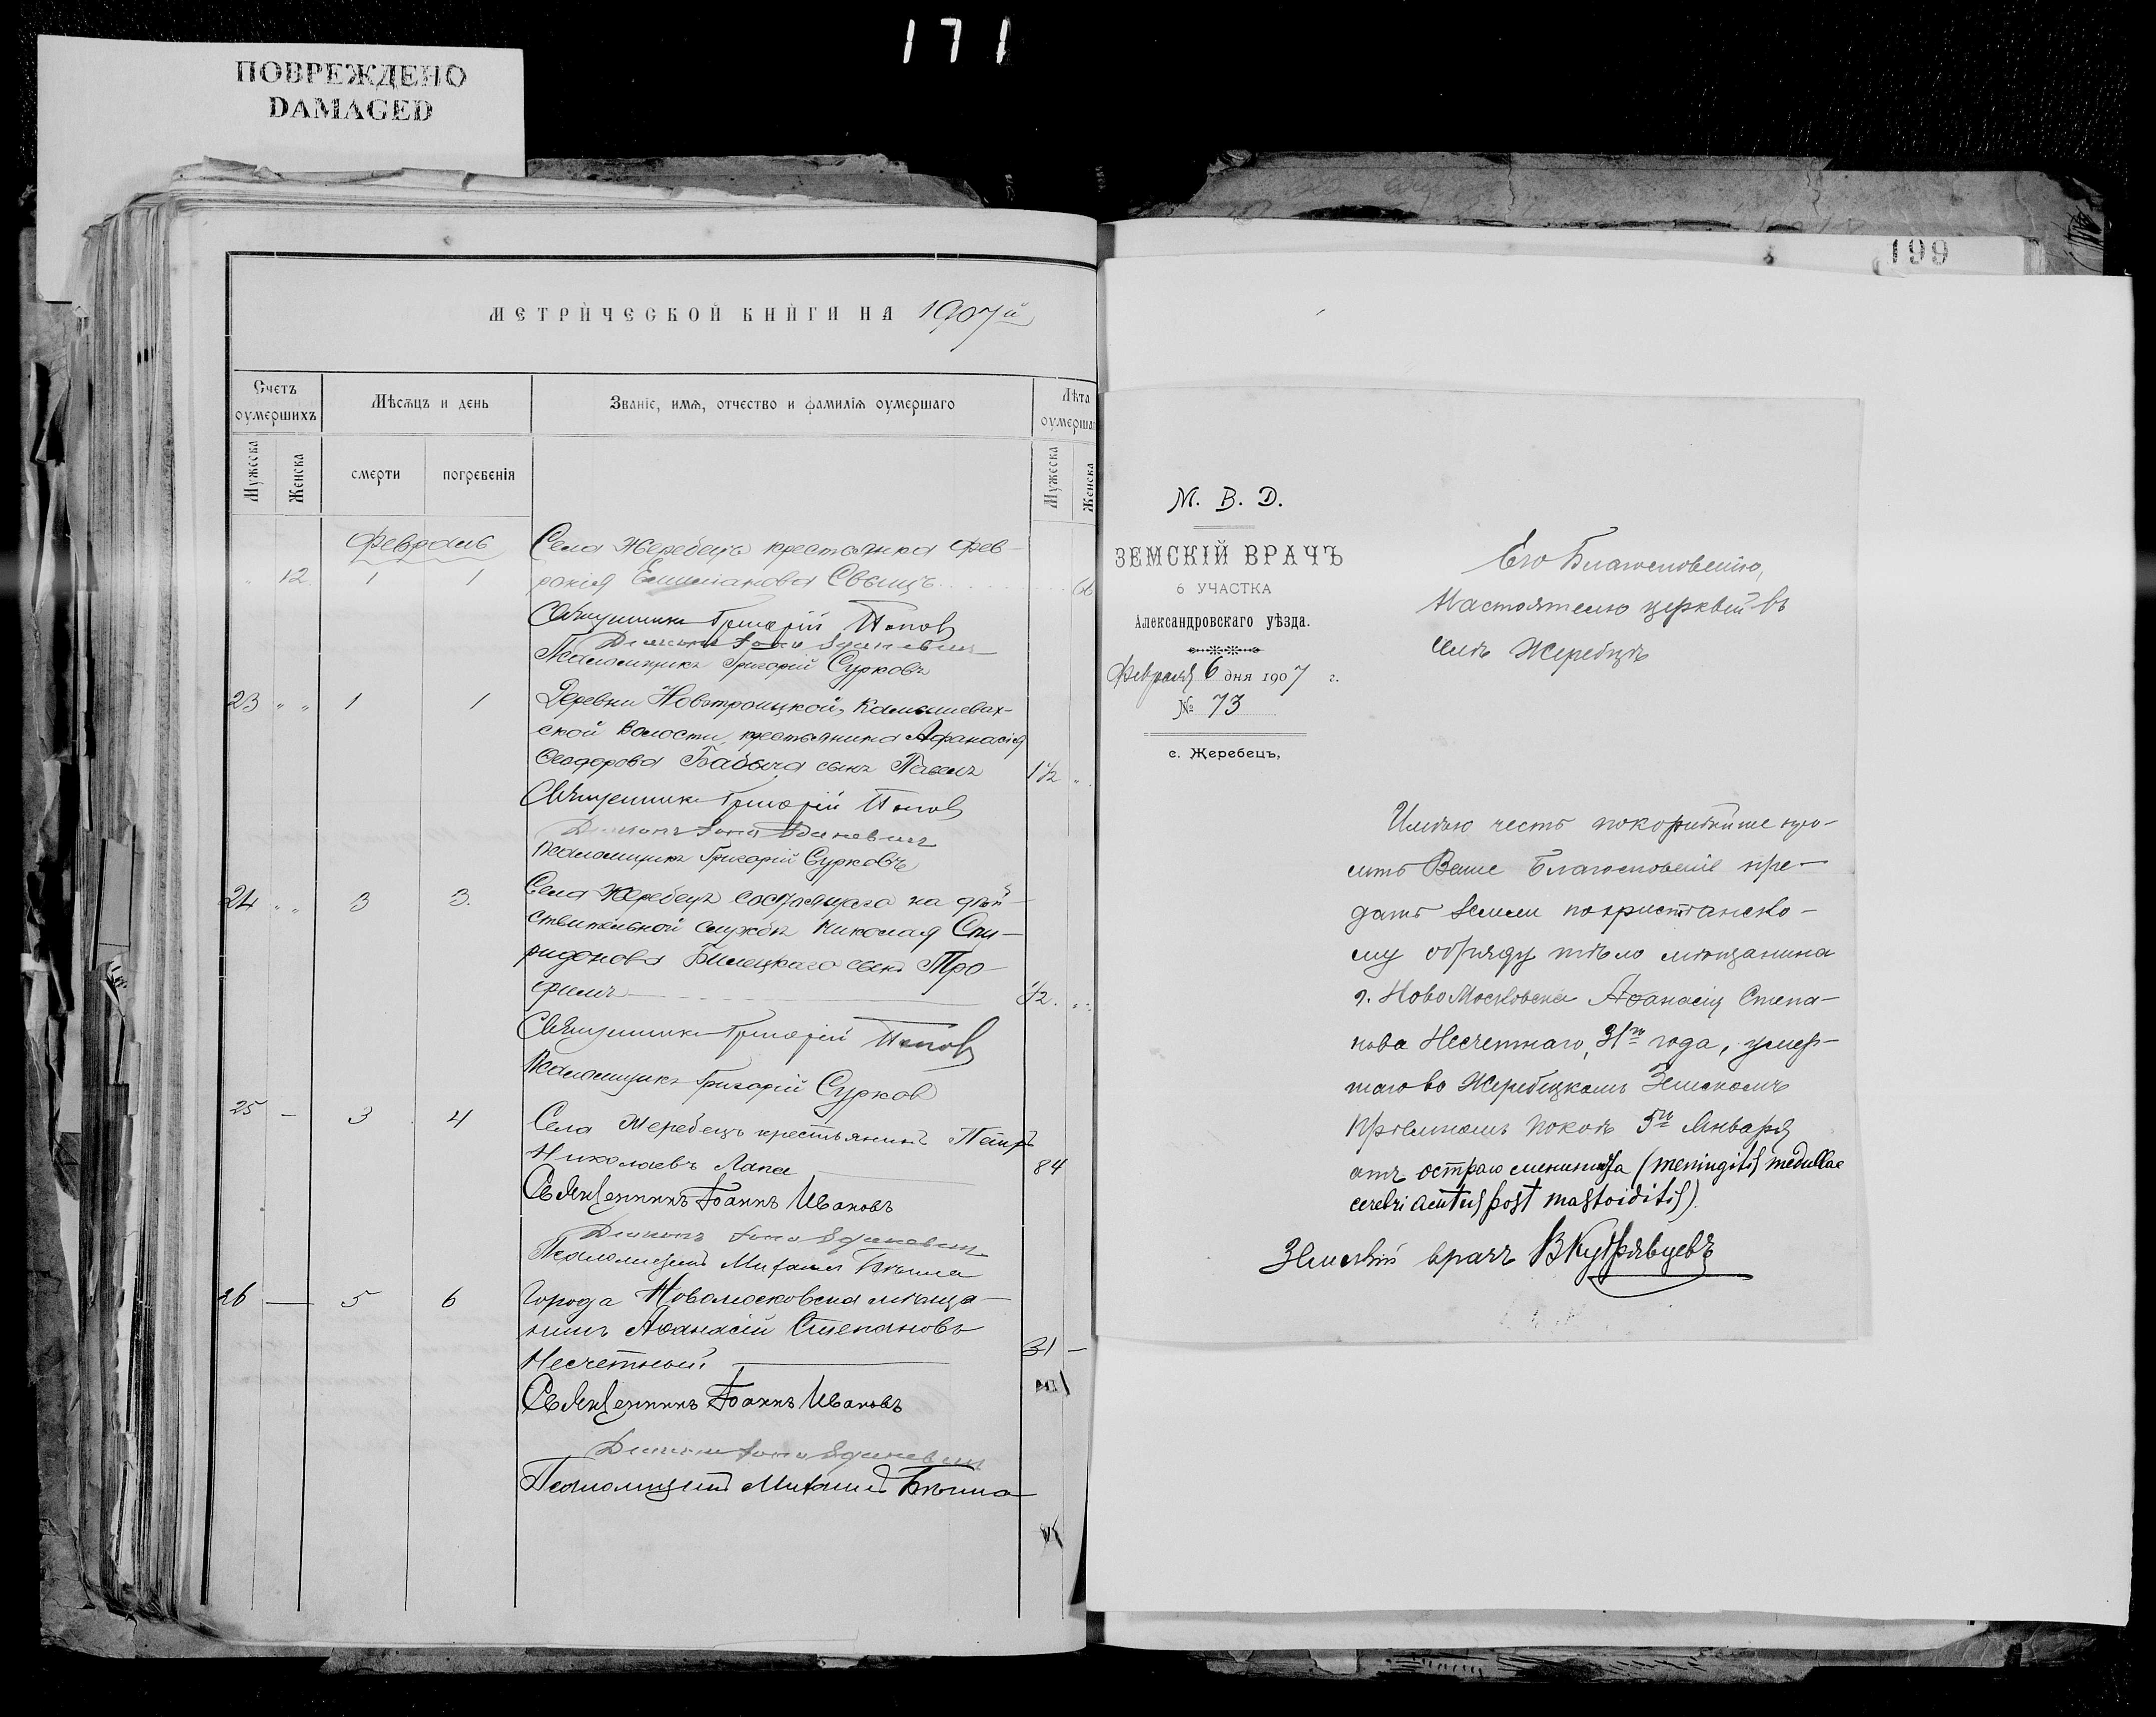 171
ПОВРЕЖДЕНО
DAMAGED
МЕТРИЧЕСКОЙ КНИГИ НА 1907й
Счетъ оумершихъ
Мѣсяцъ и день
Званіе, имя, отчество и фамилія оумершаго
Лѣта
оумерша
Мужеска
Женска
смерти
погребенія
Мужеска
Женска
Февраль
Села Жеребецъ крестьянка Фев-
12 1 1 ронія Емиліанова Свыщъ 66
Священникъ Григорій Попов
Діаконъ
Псаломщикъ Григорій Сурковъ
23 " " 1 1 Деревни Новотроицкой, Камышевах-
ской волости, крестьянина Афанасія
Ѳеодорова Бабыча сынъ Павелъ 1 1/2 "
Священникъ Григорій Попов
Діаконъ
Псаломщикъ Григорій Сурковъ
24 " " 3 3. Села Жеребецъ состоящаго на дѣй-
ствительной службѣ Николая Спи-
ридонова Билецкаго сынъ Тро-
фимъ 1/2
Священникъ Григорій Попов
Псаломщикъ Григорій Сурков
25 — 3 4 Села Жеребецъ крестьянинъ Петръ
Николаевъ Лапа 84
Священникъ Іоаннъ Ивановъ
Діаконъ
Псаломщикъ Михаилъ
26 — 5 6 Города Новомосковска мѣща-
нинъ Аѳанасій Степановъ
Несчетный 31 —
Священникъ Іоаннъ Ивановъ
Діаконъ
Псаломщикъ Михаилъ
199
М. В. Д.
ЗЕМСКІЙ ВРАЧЪ
6 УЧАСТКА
Александровскаго уѣзда.
Февраля 6 дня 1907 г.
№ 73
с. Жеребецъ,
Его Благословенію,
Настоятелю церквей въ
селѣ Жеребцѣ
Имѣю честь покорнѣйше про-
сить Ваше Благословеніе пре-
дать земли по христіанско-
му обряду тѣло мѣщанина
г. НовоМосковска Аѳанасія Степа-
нова Несчетнаго, 31го года, умер-
шаго во Жеребецкомъ Земскомъ
Пріемномъ покоѣ 5го Января
отъ остраго менингита (meningitis medullae
cerebri acutus post mastoiditis).
Земскій врачъ ВКудрявцевъ